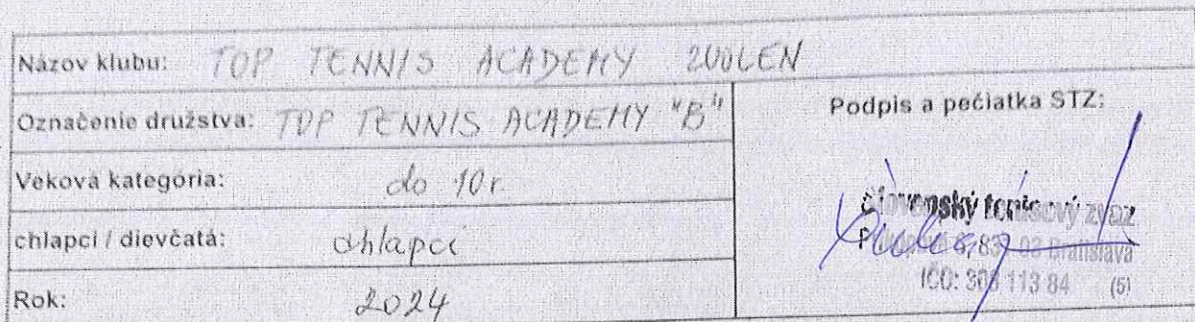 Názov klubu: TOP TENNIS ACADEMY ZVOLEN
Označenie družstva: TOP TENNIS ACADEMY "B"
Veková kategória: do 10r.
chlapci / dievčatá: chlapci
Rok: 2024
Podpis a pečiatka STZ:
Slovenský tenisový zväz
83 03 Bratislava
IČO: 308 113 84 (5)